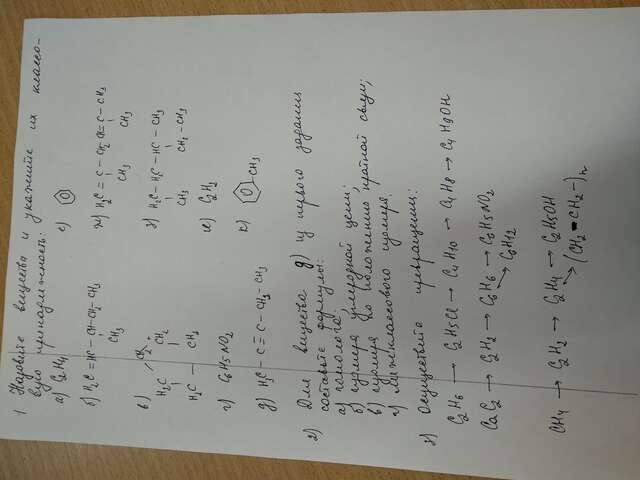 1. Назовите вещества и укажите их классо-
вую принадлежность:
а) C2H4
е)
б) H2C = HC - CH - CH2 - CH3
CH3
ж) H2C = C - CH2 - CH = C - CH3
CH3 CH3
в) CH2
H2C CH2
H2C - CH2
з) H2C - H2C - HC - CH3
CH3 CH2 - CH3
г) C6H5NO2
и) C2H2
д) H3C - C ≡ C - CH2 - CH3
к) - CH3
2) Для вещества д) из первого задания
составьте формулы:
а) гомолога;
б) изомера углеродной цепи;
в) изомера по положению кратной связи;
г) межклассового изомера.
3) Осуществите превращения:
C2H6 → C2H5Cl → C4H10 → C4H8 → C4H9OH
CaC2 → C2H2 → C6H6 → C6H5NO2
C6H12
CH4 → C2H2 → C2H4 → C2H5OH
(CH2 - CH2 -)n